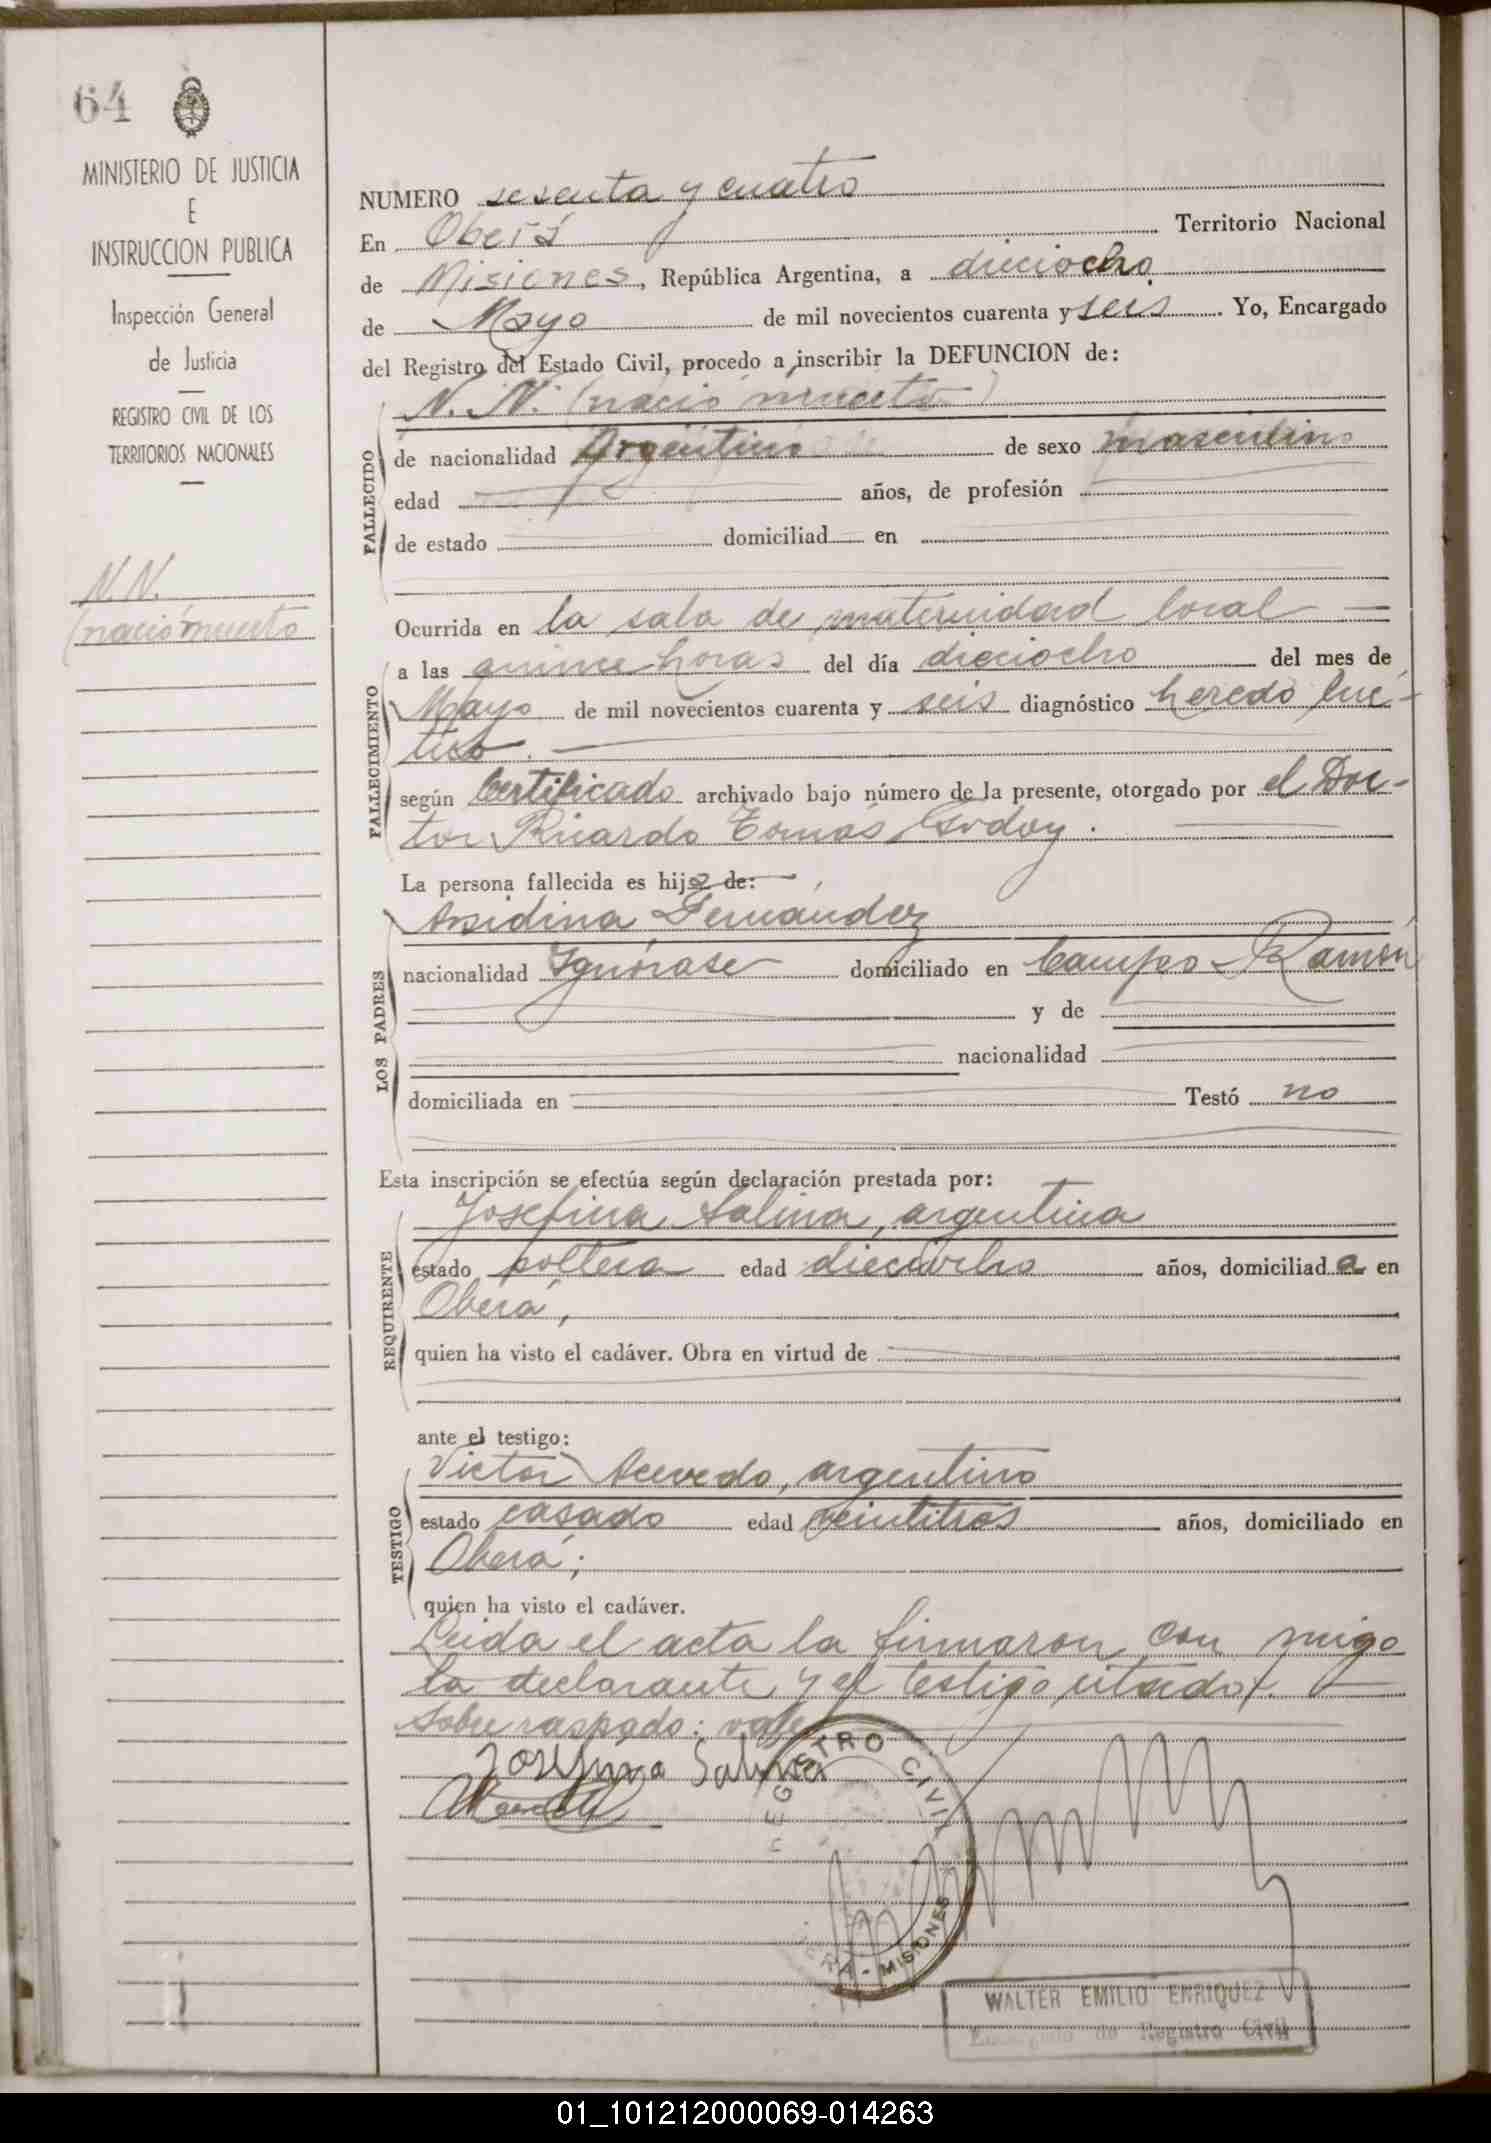 64
MINISTERIO DE JUSTICIA
E
INSTRUCCION PUBLICA
Inspección General
de Justicia
REGISTRO CIVIL DE LOS
TERRITORIOS NACIONALES
N.N.
(nació muerto
NUMERO sesenta y cuatro
En Oberá Territorio Nacional
de Misiones, República Argentina, a dieciocho
de Mayo de mil novecientos cuarenta y seis. Yo, Encargado
del Registro del Estado Civil, procedo a inscribir la DEFUNCION de:
N. N. (nació muerto)
FALLECIDO
de nacionalidad Argentino de sexo masculino
edad años, de profesión
de estado domiciliad en
Ocurrida en la sala de maternidad local
FALLECIMIENTO
a las quince horas del día dieciocho del mes de
Mayo de mil novecientos cuarenta y seis diagnóstico heredo lué-
tico.
según Certificado archivado bajo número de la presente, otorgado por el Doc-
tor Ricardo Tomás Godoy.
La persona fallecida es hijo de:
LOS PADRES
Fernandez
nacionalidad Ignórase domiciliado en Campo Ramón
y de
nacionalidad
domiciliada en Testó no
Esta inscripción se efectúa según declaración prestada por:
REQUIRENTE
Josefina Salina, argentina
estado soltera edad dieciocho años, domiciliada en
Oberá,
quien ha visto el cadáver. Obra en virtud de
ante el testigo:
TESTIGO
Victor Acevedo, argentino
estado casado edad veintitres años, domiciliado en
Oberá;
quien ha visto el cadáver.
Leida el acta la firmaron con migo
la declarante y el testigo citado.
Sobre raspado: vale
Josefina Salina
REGISTRO CIVIL
OBERÁ - MISIONES
WALTER EMILIO ENRIQUEZ V
Encargado de Registro Civil
01_101212000069-014263